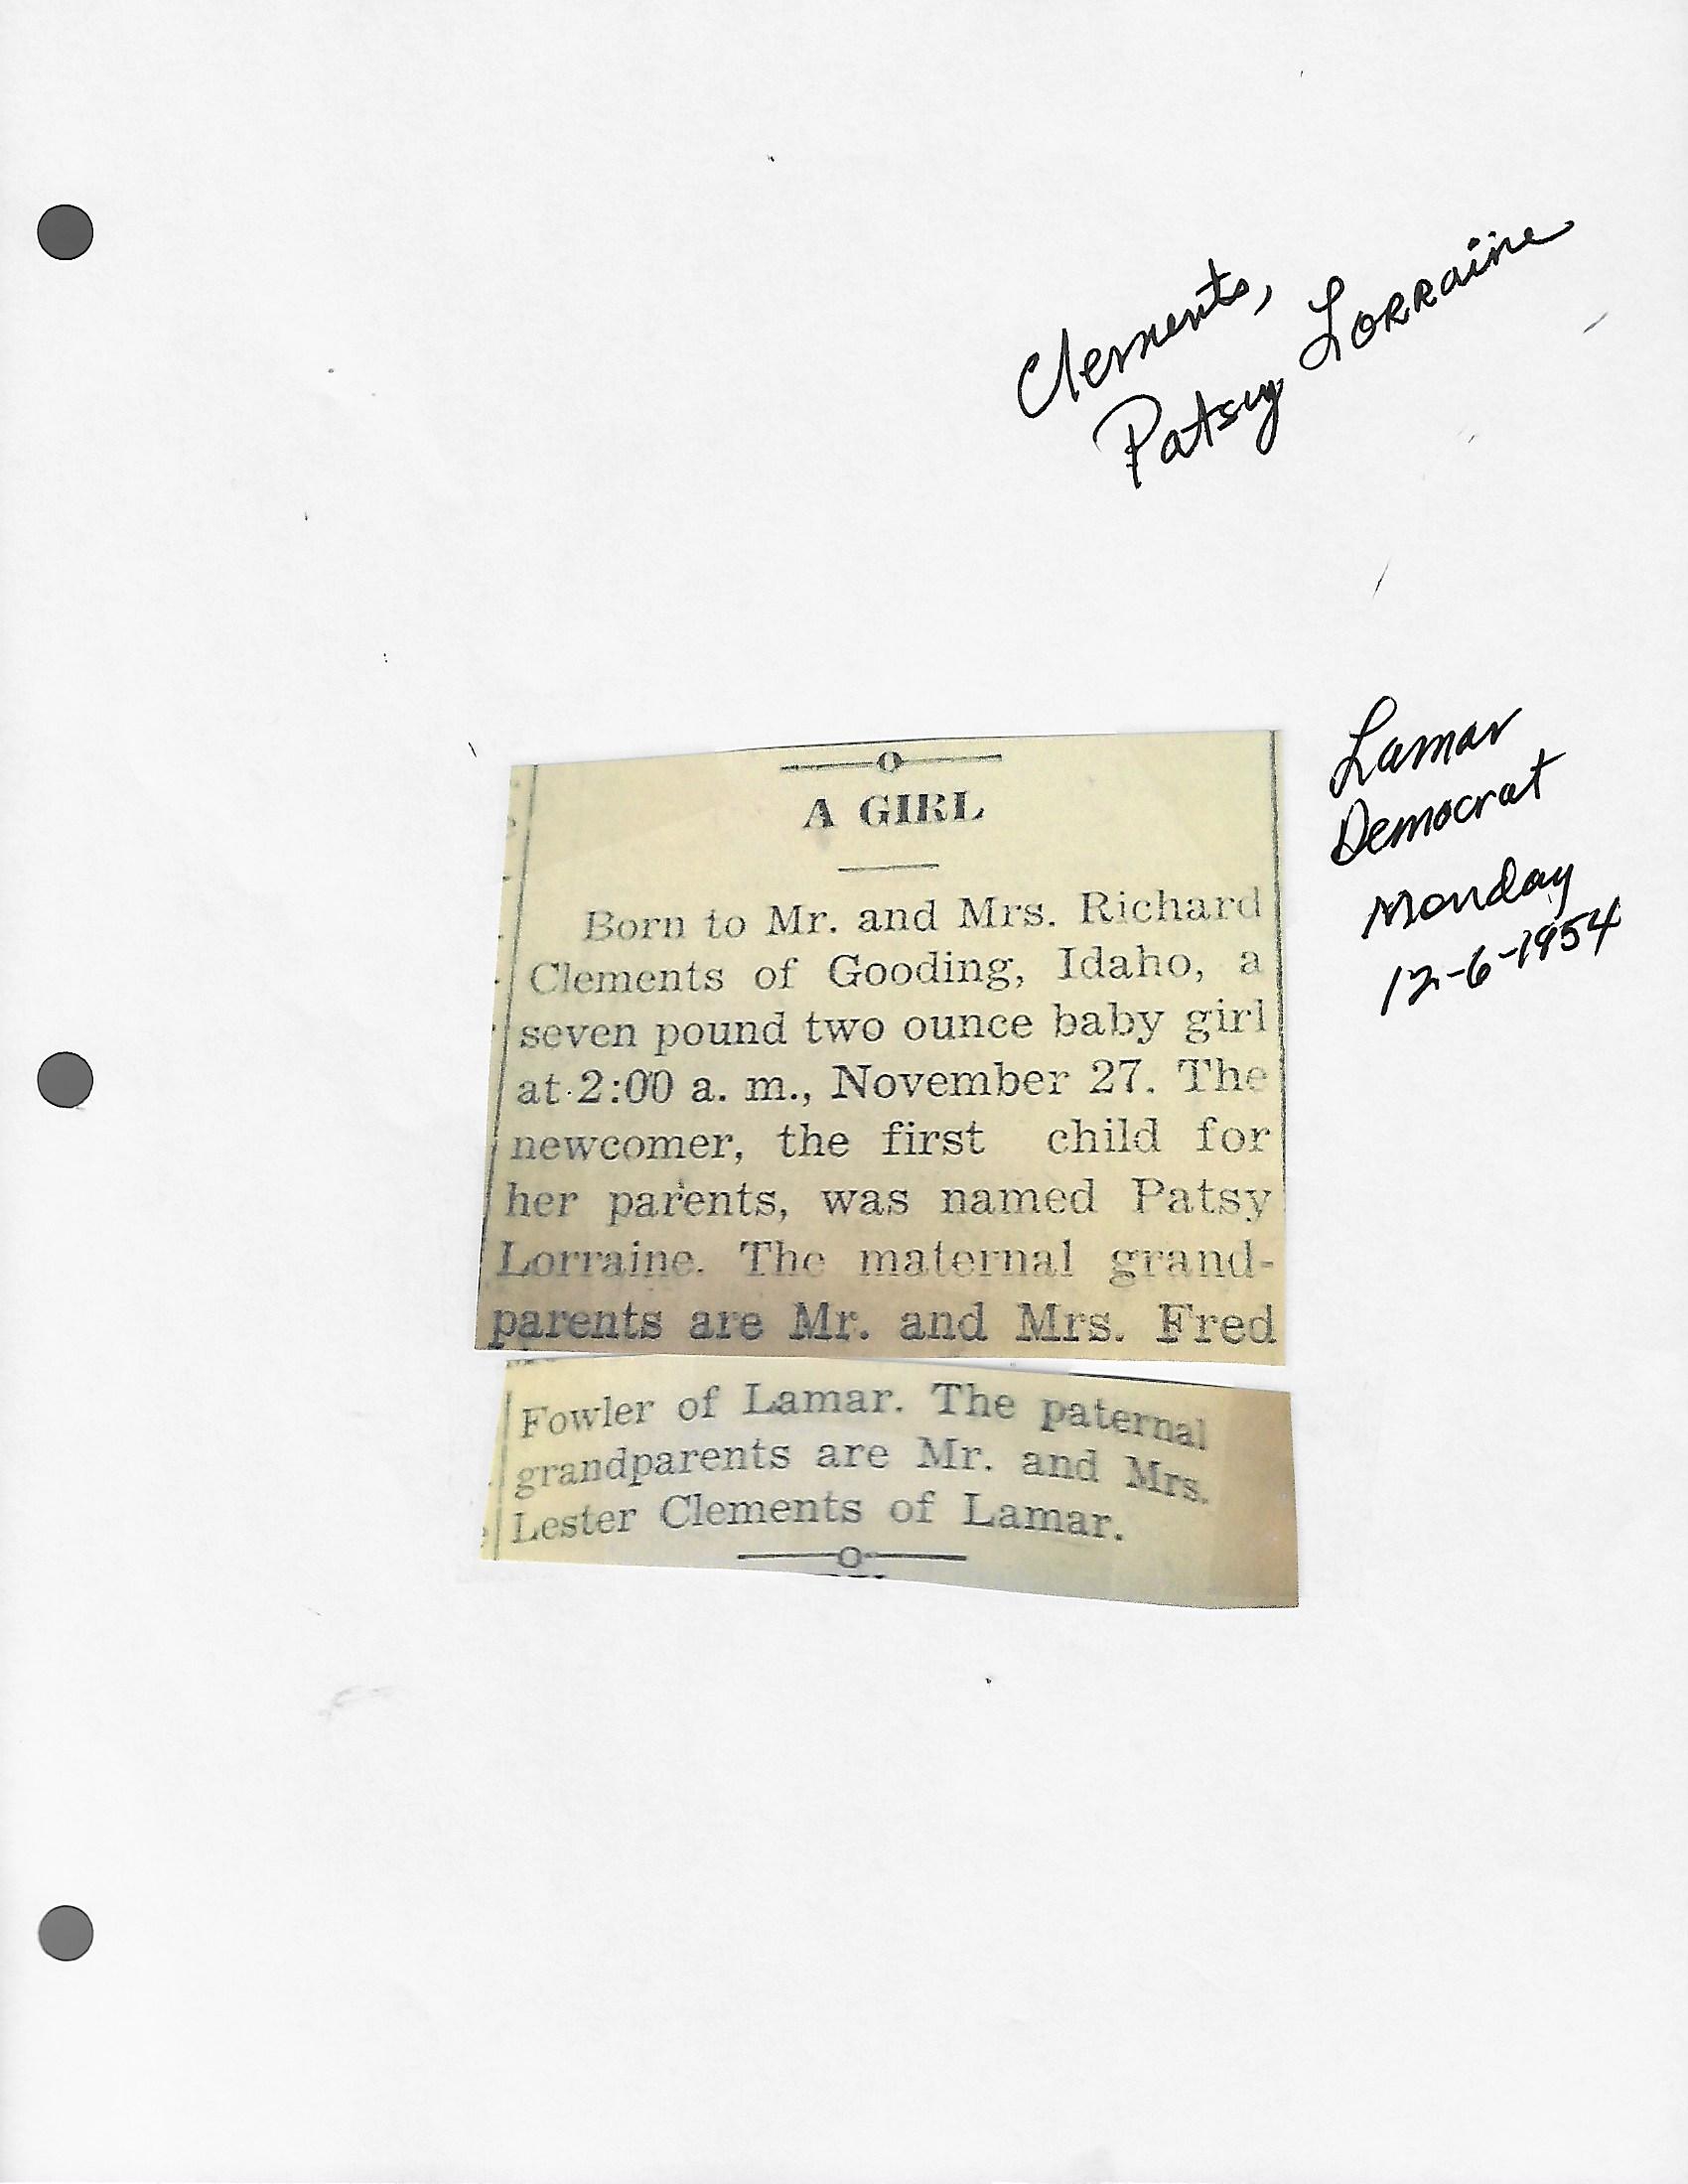 Clements,
Patsy Lorraine
Lamar
Democrat
Monday
12-6-1954
A GIRL
Born to Mr. and Mrs. Richard
Clements of Gooding, Idaho, a
seven pound two ounce baby girl
at 2:00 a. m., November 27. The
newcomer, the first child for
her parents, was named Patsy
Lorraine. The maternal grand-
parents are Mr. and Mrs. Fred
Fowler of Lamar. The paternal
grandparents are Mr. and Mrs.
Lester Clements of Lamar.